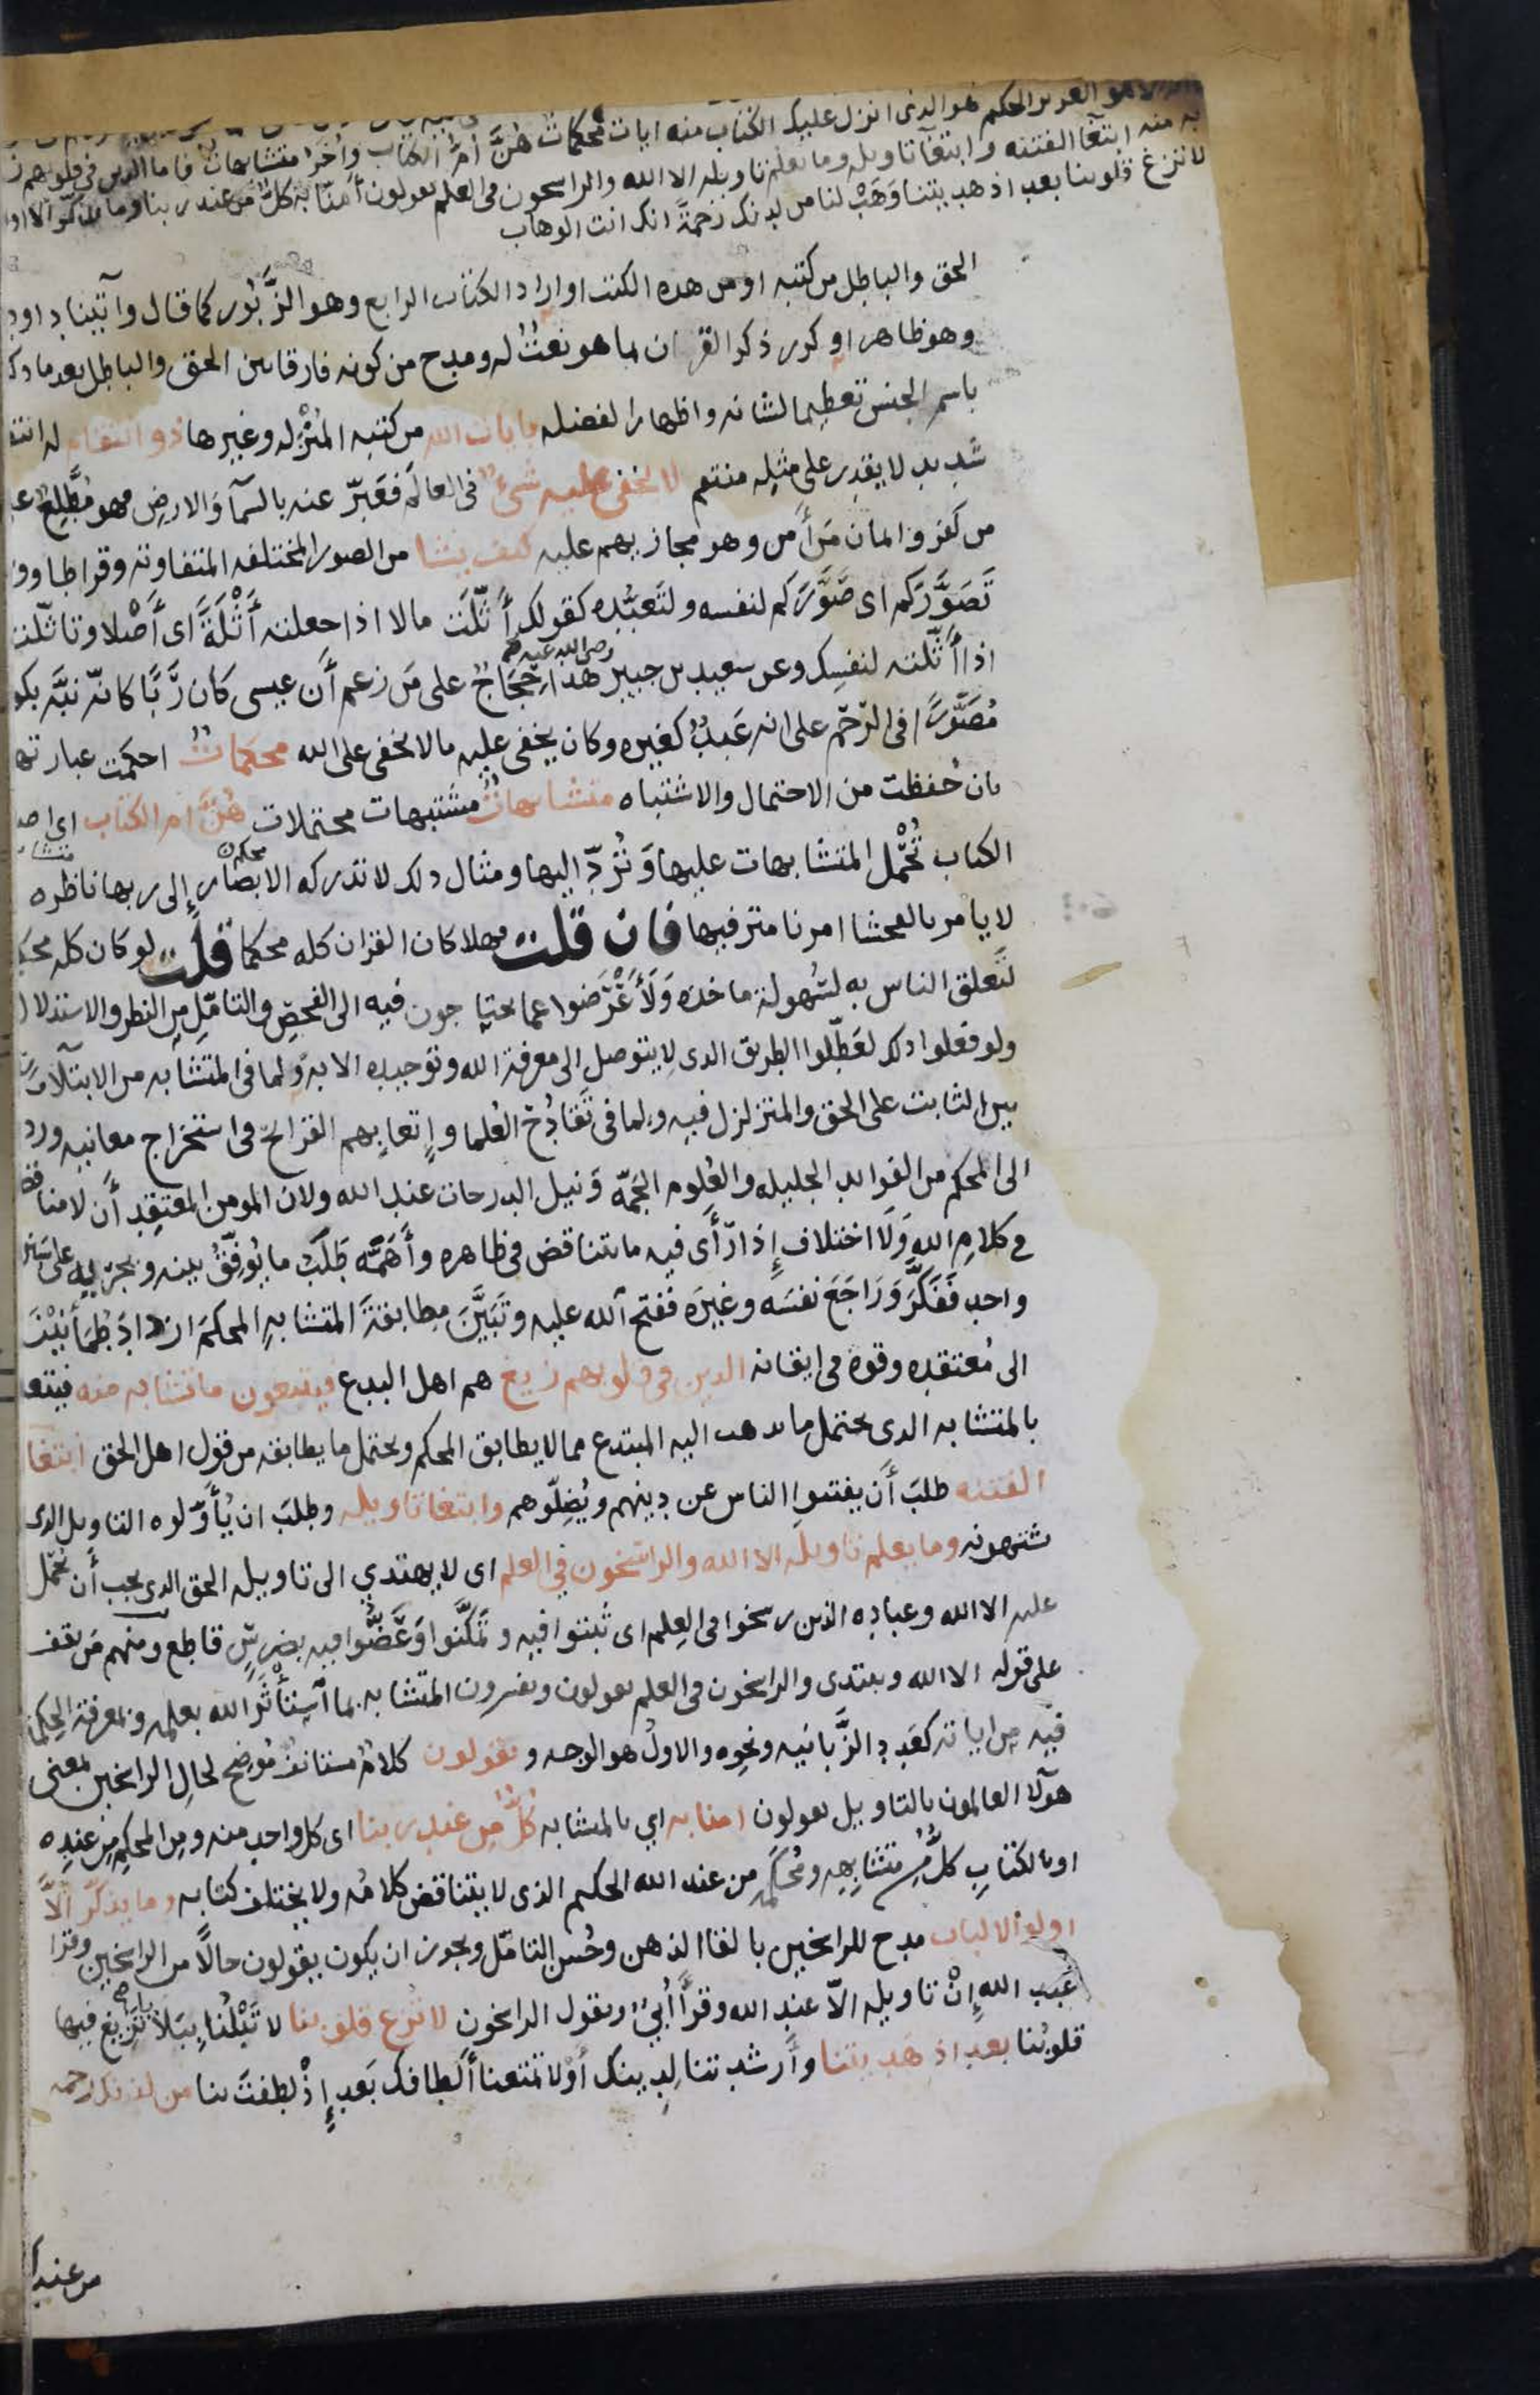 الا هو العزيز الحكيم هو الذى انزل عليك الكتاب منه ايات محكمات هُنَّ امُّ الكتاب واُخَر متشابهات فاما الذين فى قلوبهم
به منه ابتغا الفتنه وابتغآ تاويله وما يعلم تاويله الا الله والراسخون فى العلم يقولون اٰمنّا به كلٌّ من عند ربنا وما يذكّر الا
لا تزغ قلوبنا بعد اذ هديتنا وَهَبْ لنا من لدنك رَحمَةً انك انت الوهاب
الحق والباطل من كتبه او من هذه الكتب او اراد الكتاب الرابع وهو الزَّبُور كما قال وآتينا داود
وهو ظاهر او كرر ذكر القران بما هو نعتٌ له ومدح من كونه فارقا بين الحق والباطل بعد ما
باسم الجنس تعظيما لشانه واظهارا لفضله بايات الله من كتبه المُنْزَّله وغيرها ذو انتقام له
شديد لا يقدِر على مثلِه منتقم لا يخفى عليه شىٌ فى العالَم فعَبّر عنه بالسمآ والارض فهو مُطَّلِع
من كفر وايمان مَن أَمن وهو مجازيهم عليه كيف يشا من الصور المختلفه المتفاوته وقرا طاووس
تَصَوَّرَكم اى صَوَّرَكم لنفسه ولتَعبُّدِه كقولك أَثّلَت مالا اذا جعلته أَثْلَةً اى أَصْلا وتاثّلته
اذا أَثّلته لنفسِك وعن سعيد بن جبير رضى الله عنه هذا حِجَاجٌ على مَن زعم أَن عيسى كان رَبًّا كانّه نبَّه بكو
مُصَوَّرًا فى الرّحم على انه عَبدٌ كغيره وكان يخفى عليه مالا يخفى على الله محكماتٌ احكمت عبارتها
بان حُفظت من الاحتمال والاشتباه متشابهاتٌ مشتبهات محتملات هُنَّ ام الكتاب اى
الكتاب تُحْمَل المتشابهات عليها وَتُردّ اليها ومثال ذلك لا تدركه الابصار إلى ربها ناظره
لا يامر بالفحشا امرنا مترفيها فان قلت فهلا كان القران كله محكما قلت لو كان كله
لَتَعلق الناس به لسُهولة ماخذه وَلَأَعْرَضوا عما يحتاجون فيه الى الفحصِ والتامّلِ مِن النظر والاستدلال
ولو فعلوا ذلك لعَطّلوا الطريق الذى لا يتوصل الى معرفة الله وتوحيده الا به ولما فى المتشابه من الابتلآ
بين الثابت على الحق والمتزلزل فيه ولما فى تَقَادُح العُلما وإتعابهم القرائحَ فى استخراج معانيه ورد
الى المحكم من الفوائد الجليله والعُلوم الجَمّه وَنيل الدرجات عند الله ولان المومن المعتقِد أَن لا مناقضه
فى كلامِ الله وَلَا اختلاف إِذا رَأَى فيه ما يتناقض فى ظاهره وأَهَمَّه طَلَبُ ما يُوفِّقُ بينه ويجريه على سَنَن
واحد فَفَكَّرَ وَرَاجَعَ نفسَه وغيرَه ففتح الله عليه وتَبَيَّنَ مطابقةَ المتشابهِ المحكمَ ازدادَ طُمَأنينَة
الى مُعتقدِه وقوة فى ايقانه الذين فى قلوبهم زيغ هم اهل البدع فيتبعون ما تشابه منه
بالمتشابه الذى يحتمل ما يذهب اليه المبتدع مما لا يطابق المحكم ويحتمل ما يطابقه من قول اهل الحق ابتغا
الفتنه طلبَ أَن يفتنوا الناس عن دينهم ويُضِلّوهم وابتغا تاويله وطلبَ ان يُأَوّلوه التاويل الذى
يشتهونه وما يعلم تاويله الا الله والراسخون فى العلم اى لا يهتدي الى تاويله الحق الذى يجب أَن يُحْمل
عليه الا الله وعباده الذين رسخوا فى العِلم اى ثَبتوا فيه وتَمكَّنوا وَعَضُّوا فيه بضِرسٍ قاطع ومنهم مَن يقف
على قوله الا الله ويبتدى والراسخون فى العلم يقولون ويفسرون المتشابه بما آسِتأْثَر الله بعلمه وبمعرفةِ الحِكمة
فيه من اياته كعَدد الزَّبَانيه ونحوه والاول هو الوجه ويقولون كلامٌ مستانفٌ مُوضِح لحالِ الراسخين بمعنى
هوآلا العالمون بالتاويل يقولون امنا به اي بالمتشابه كُلٌّ مِن عند ربنا اى كل واحد منه ومِن المحكم مِن عندِه
او بالكتابِ كلٌّ مِن متشابهِه ومُحكمه من عند الله الحكيم الذى لا يتناقض كلامُه ولا يختلف كتابه وما يذكّر الّا
اولوا الالباب مدح للراسخين بالقا الذهن وحُسن التامّل ويجوز ان يكون يقولون حالًا من الراسخين وقرا
عَبد الله إِنْ تاويله الّا عند الله وقرأَ أُبيٌّ ويقول الراسخون لا تُزغ قلوبنا لا تَبْلُنا ببَلايا تَزيغ فيها
قلوبُنا بعد اذ هَديتنا وأَرشدتنا لِدينك أَوْ لا تمنعنا أَلطافَك بَعد إِذْ لطفتَ بنا من لدنك رحمه
من عندك